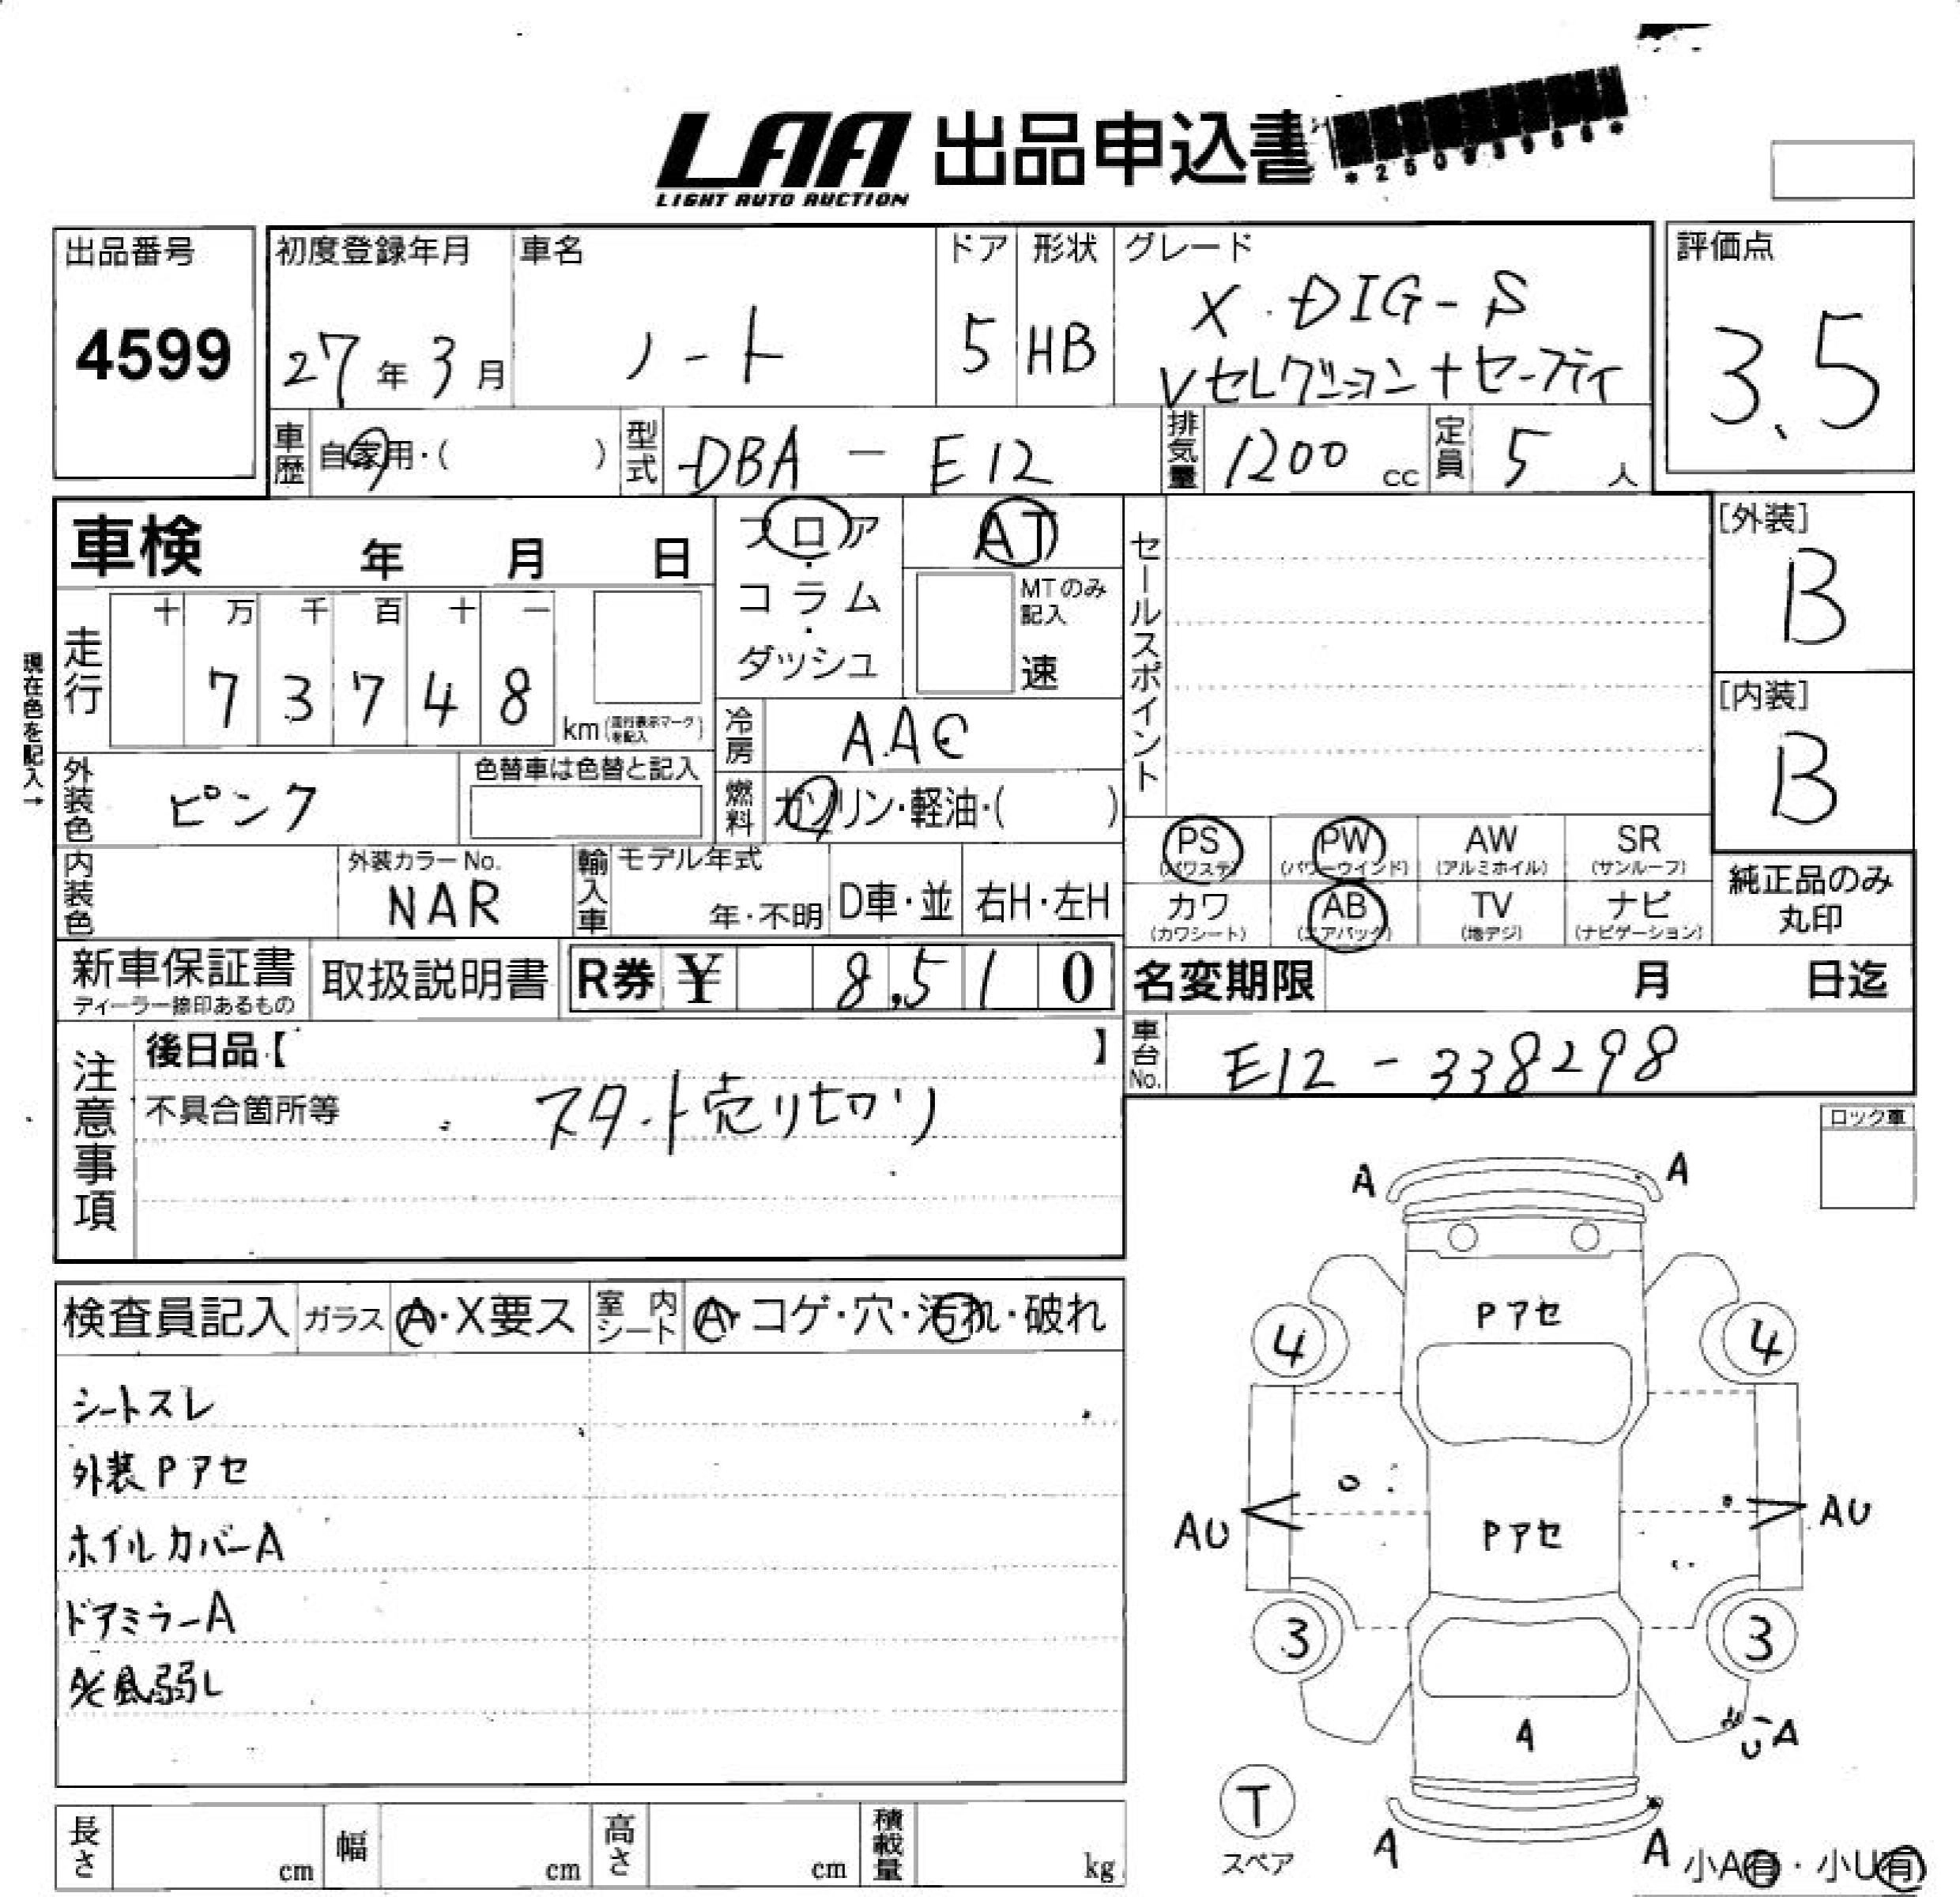 LAA 出品申込書
LIGHT AUTO AUCTION
出品番号
4599
初度登録年月
27年3月
車名
ノート
ドア
5
形状
HB
グレード
X DIG-S
Vセレクション+セーフティ
評価点
3.5
車歴 自家用・( )
型式 DBA - E12
排気量 1200 cc
定員 5 人
車検 年 月 日
フロア・コラム・ダッシュ
AT
MTのみ記入
速
セールスポイント
[外装]
B
[内装]
B
現在色を記入→
走行
十 万 千 百 十 一
7 3 7 4 8
km (走行表示マークを記入)
冷房 AAC
燃料 ガソリン・軽油・( )
外装色 ピンク
色替車は色替と記入
内装色
外装カラーNo.
NAR
輸入車
モデル年式
年・不明
D車・並
右H・左H
PS (パワステ)
PW (パワーウインド)
AW (アルミホイル)
SR (サンルーフ)
カワ (カワシート)
AB (エアバック)
TV (地デジ)
ナビ (ナビゲーション)
純正品のみ丸印
新車保証書
ディーラー捺印あるもの
取扱説明書
R券 ¥ 8,510
名変期限 月 日迄
車台No. E12 - 338298
注意事項
後日品【 】
不具合箇所等
スタート売り切り
ロック車
検査員記入
ガラス A・X要ス
室内シート A・コゲ・穴・汚れ・破れ
シートスレ
外装Pアセ
ホイルカバーA
ドアミラーA
A/C風弱し
A A
Pアセ
4 4
AU Pアセ AU
3 3
A
A
T
スペア
A A
小A有・小U有
長さ cm
幅 cm
高さ cm
積載量 kg